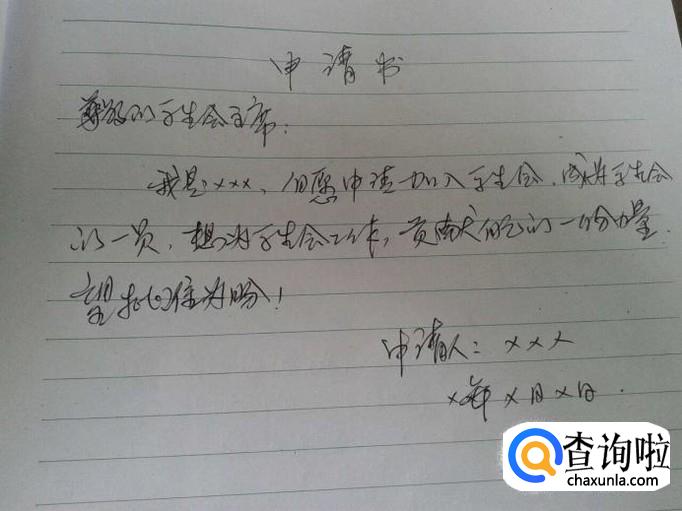 申请书
尊敬的学生会主席:
我是:×××,自愿申请加入学生会,成为学生会
的一员,想为学生会工作,贡献自己的一份力量.
望批准为盼!
申请人:×××
×年×月×日.
查询啦
chaxunla.com